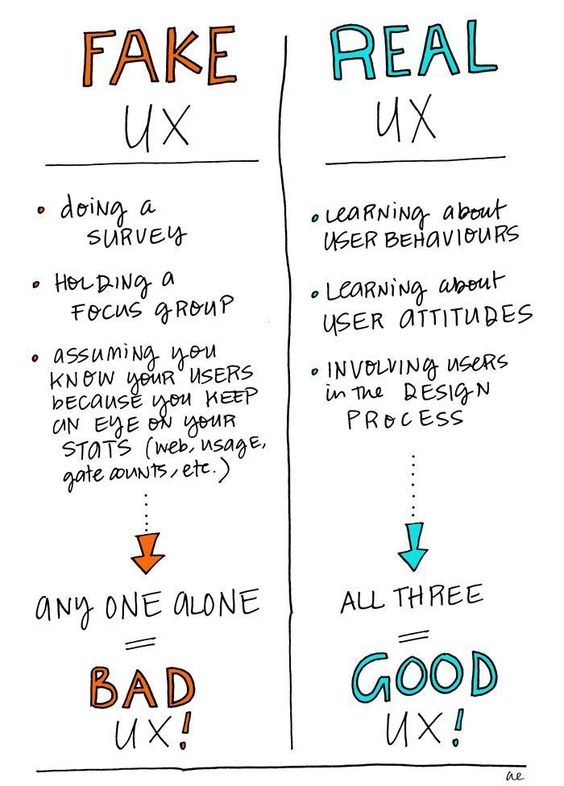 FAKE
UX
• doing a
SURVEY
• HOLDING A
FOCUS GROUP
• ASSUMING YOU
KNOW YOUR USERS
because you KEEP
AN EYE ON YOUR
STATS (web, usage,
gate counts, etc.)
ANY ONE ALONE
=
BAD
UX!
REAL
UX
• LEARNING about
USER BEHAVIOURS
• LEARNING about
USER ATTITUDES
• INVOLVING USERS
in the DESIGN
PROCESS
ALL THREE
=
GOOD
UX!
ae